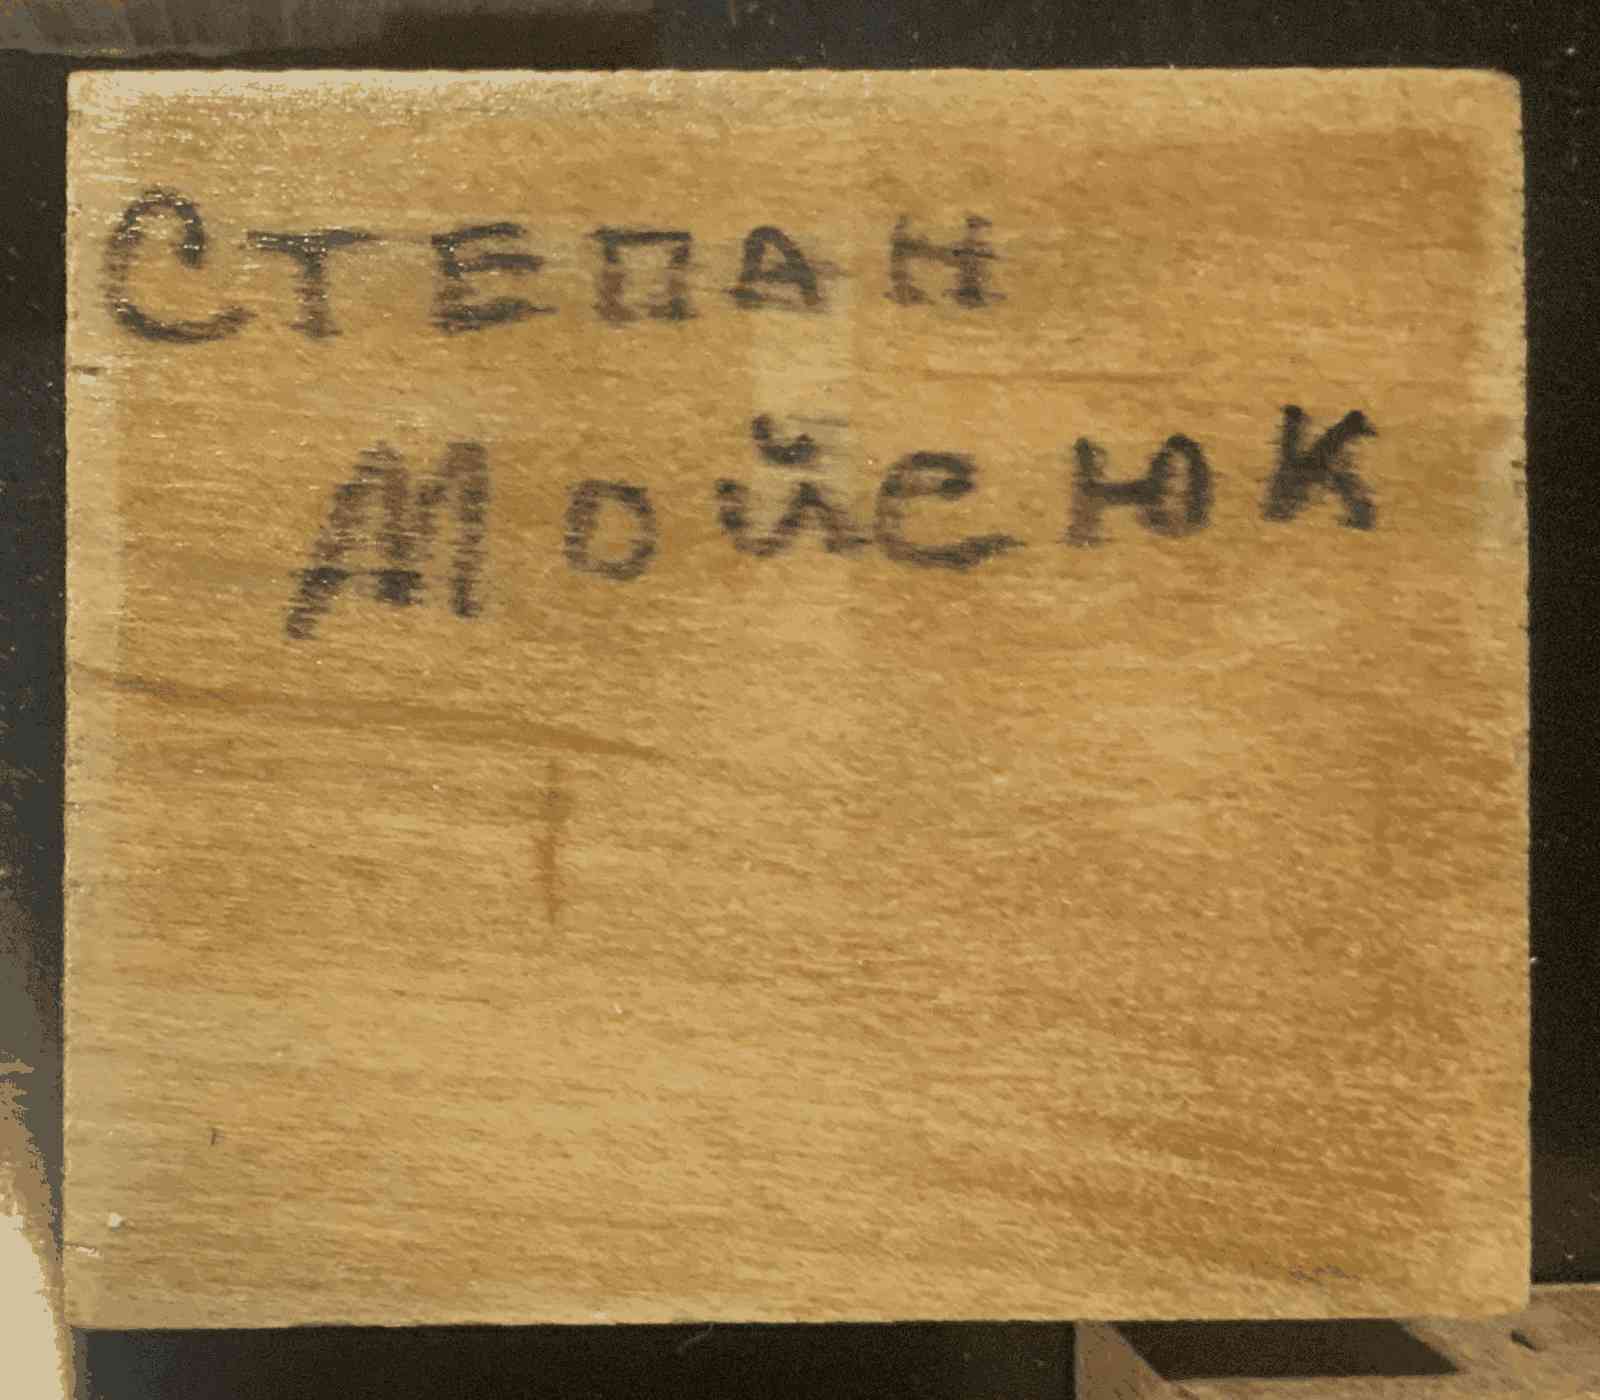 Степан
Мойсюк